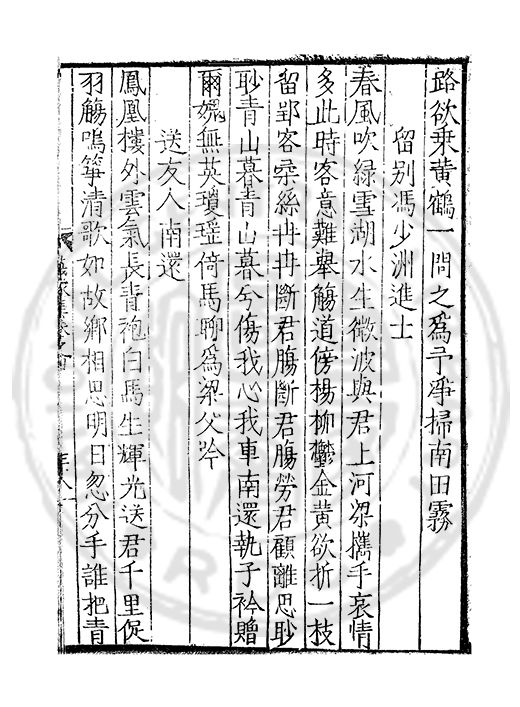 路欲乘黄鶴一問之爲予淨掃南田霧
留别馮少洲進士
春風吹綠雪湖水生微波與君上河梁攜手哀情
多此時客意難舉觴道傍楊柳鬱金黄欲折一枝
留郢客柔絲冉冉斷君膓斷君膓勞君顧離思眇
眇青山暮青山暮兮傷我心我車南還執子衿贈
爾媿無英瓊瑶倚馬聊爲梁父吟
送友人南還
鳳凰樓外雲氣長青袍白馬生輝光送君千里促
羽觴鳴箏清歌如故鄉相思明日忽分手誰把青